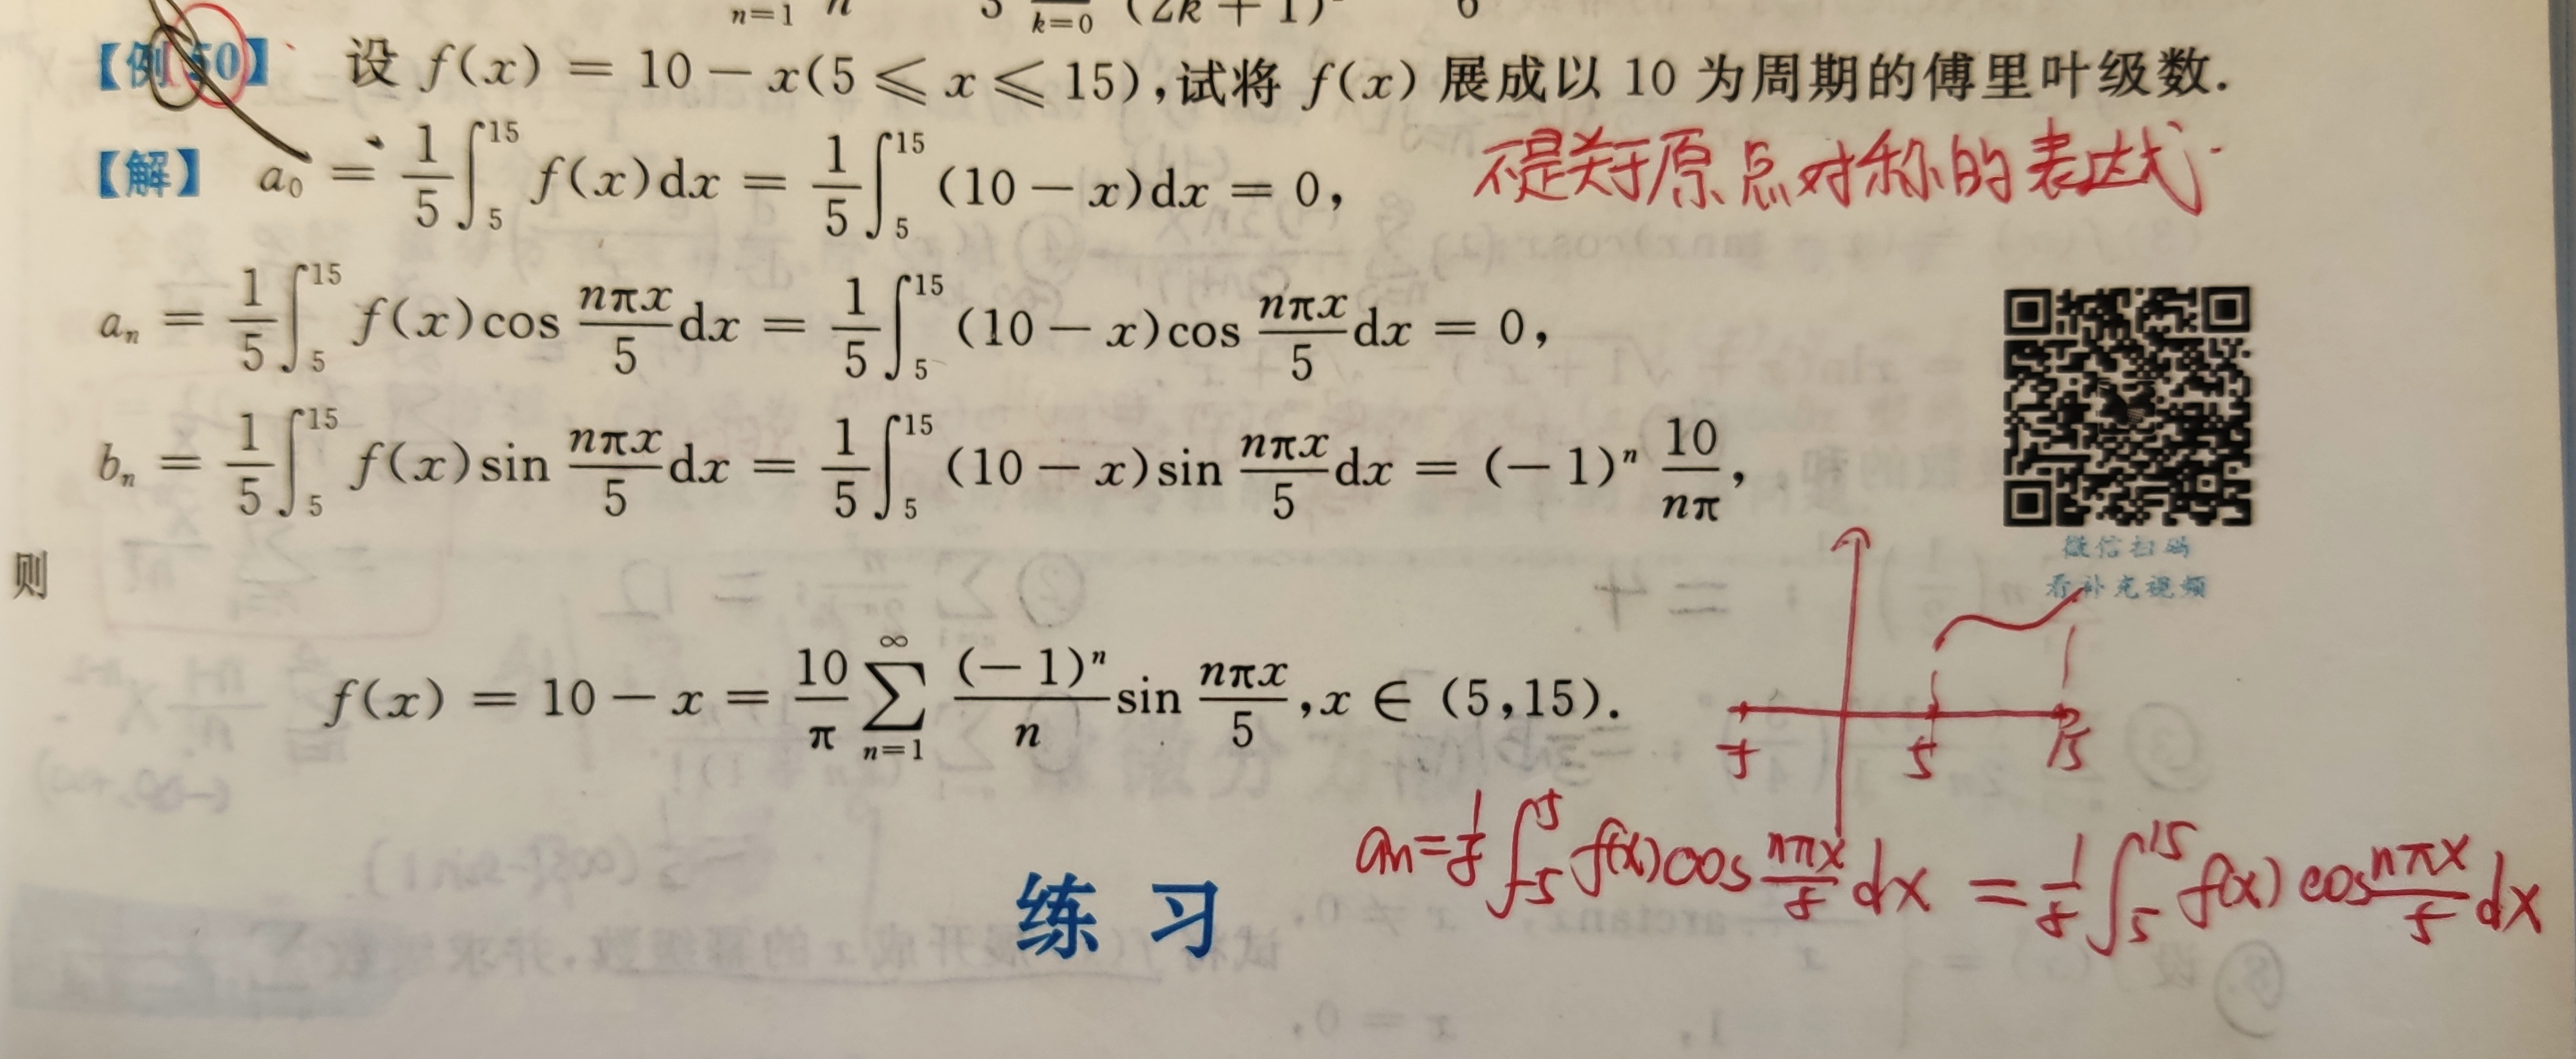 n=1 n 3 k=0 (2k+1) 6
【例 50】 设 f(x) = 10 − x(5 ⩽ x ⩽ 15),试将 f(x) 展成以 10 为周期的傅里叶级数.
不是关于原点对称的表达式.
【解】 a₀ = 1/5 ∫₅¹⁵ f(x)dx = 1/5 ∫₅¹⁵ (10 − x)dx = 0,
aₙ = 1/5 ∫₅¹⁵ f(x)cos nπx/5 dx = 1/5 ∫₅¹⁵ (10 − x)cos nπx/5 dx = 0,
bₙ = 1/5 ∫₅¹⁵ f(x)sin nπx/5 dx = 1/5 ∫₅¹⁵ (10 − x)sin nπx/5 dx = (−1)ⁿ 10/nπ,
微信扫码
看补充视频
则
f(x) = 10 − x = 10/π ∑_{n=1}^{∞} (−1)ⁿ/n sin nπx/5, x ∈ (5,15).
5 15
an = 1/5 ∫₋₅⁵ f(x) cos nπx/5 dx = 1/5 ∫₅¹⁵ f(x) cos nπx/5 dx
练 习